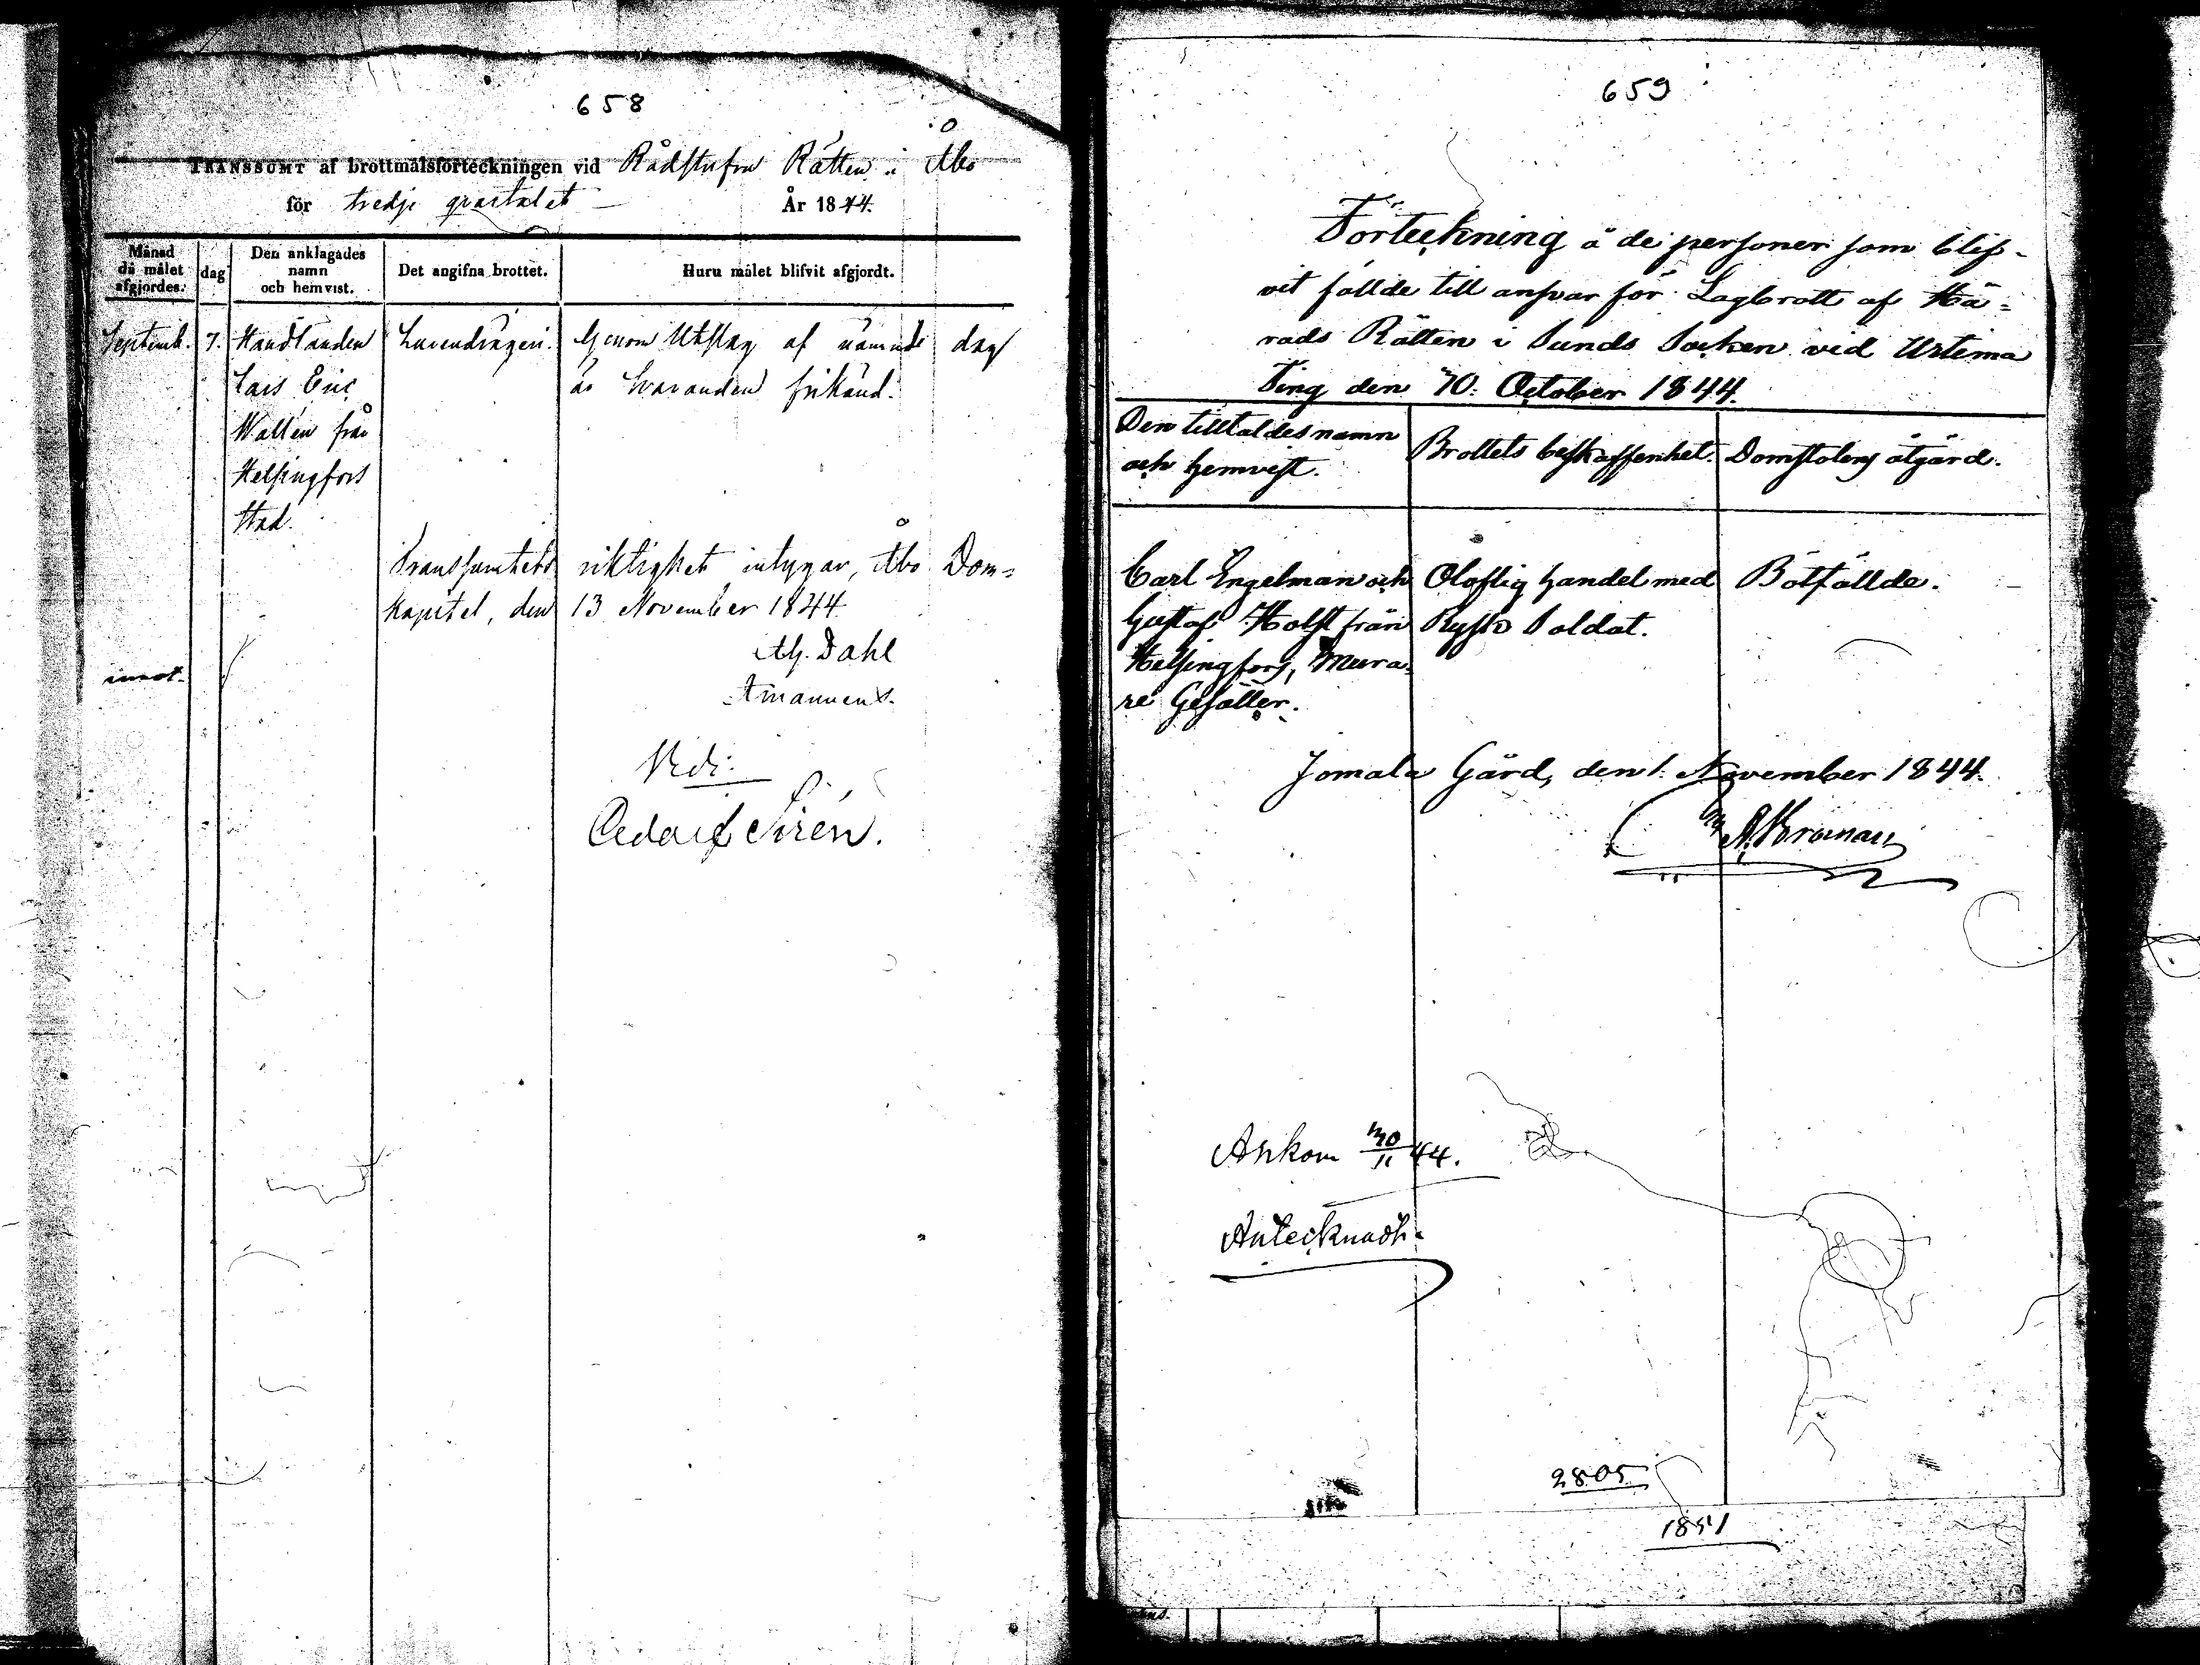 658
TRANSSUMT af brottmålsförteckningen vid Rådstufvu Rätten i Åbo
för tredje qvartalet År 1844.
Månad då målet afgjordes.
dag
Den anklagades namn och hemvist.
Det angifna brottet.
Huru målet blifvit afgjordt.
Septemb. 7. Handlanden Lurendrägeri. Genom Utslag af nämnde dag
Lars Eric är Svaranden frikänd.
Wallén från
Helsingfors
Stad.
Transsumtets riktighet intygar, Åbo Dom=
kapitel, den 13 November 1844.
Dahl
Amanuens.
Vidi:
Sirén.
659
Förteckning å de personer som blif-
vit fällde till ansvar för Lagbrott af Hä=
rads Rätten i Sunds Socken vid Urtima
Ting den 10. October 1844.
Den tilltaldes namn
och hemvist.
Brottets beskaffenhet.
Domstolens åtgärd.
Carl Engelman och Oloflig handel med Bötfällde.
Gustaf Holst från Rysk Soldat.
Helsingfors, Mura-
re Gesäller.
Jomala Gård, den 1. November 1844.
Ankom 30/11 44.
Antecknadt.
2805
1851